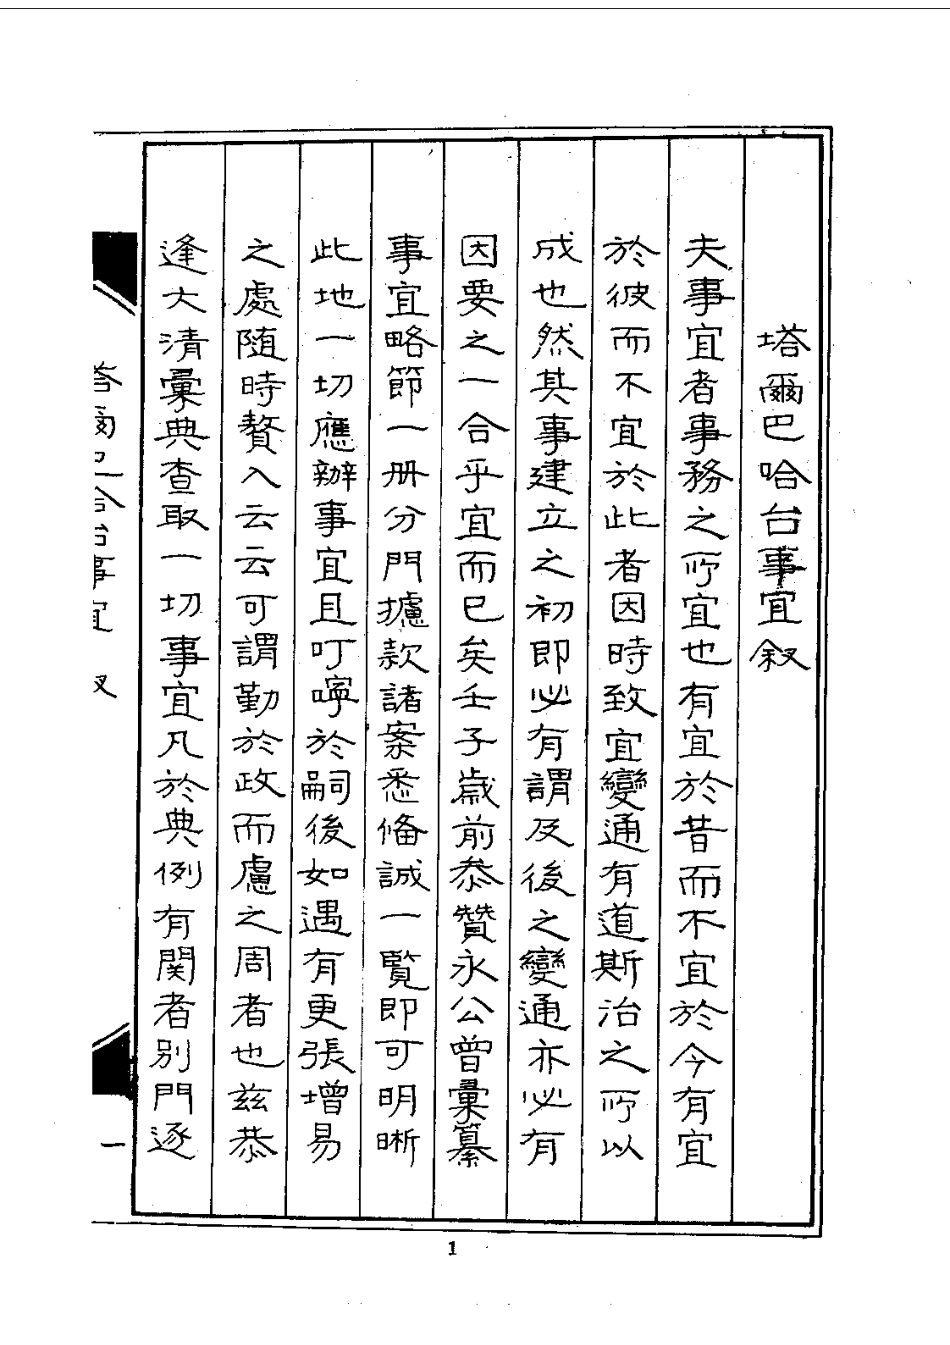 塔爾巴哈台事宜敘
夫事宜者事務之所宜也有宜於昔而不宜於今有宜
於彼而不宜於此者因時致宜變通有道斯治之所以
成也然其事建立之初即必有謂及後之變通亦必有
因要之一合乎宜而已矣壬子歲前叅贊永公曾彙纂
事宜略節一册分門攄款諸案悉俻誠一覽即可明晰
此地一切應辦事宜且叮嚀於嗣後如遇有更張增易
之處隨時贅入云云可謂勤於政而慮之周者也茲恭
逢大清彙典查取一切事宜凡於典例有関者別門逐
塔爾巴哈台事宜 叙
一
1